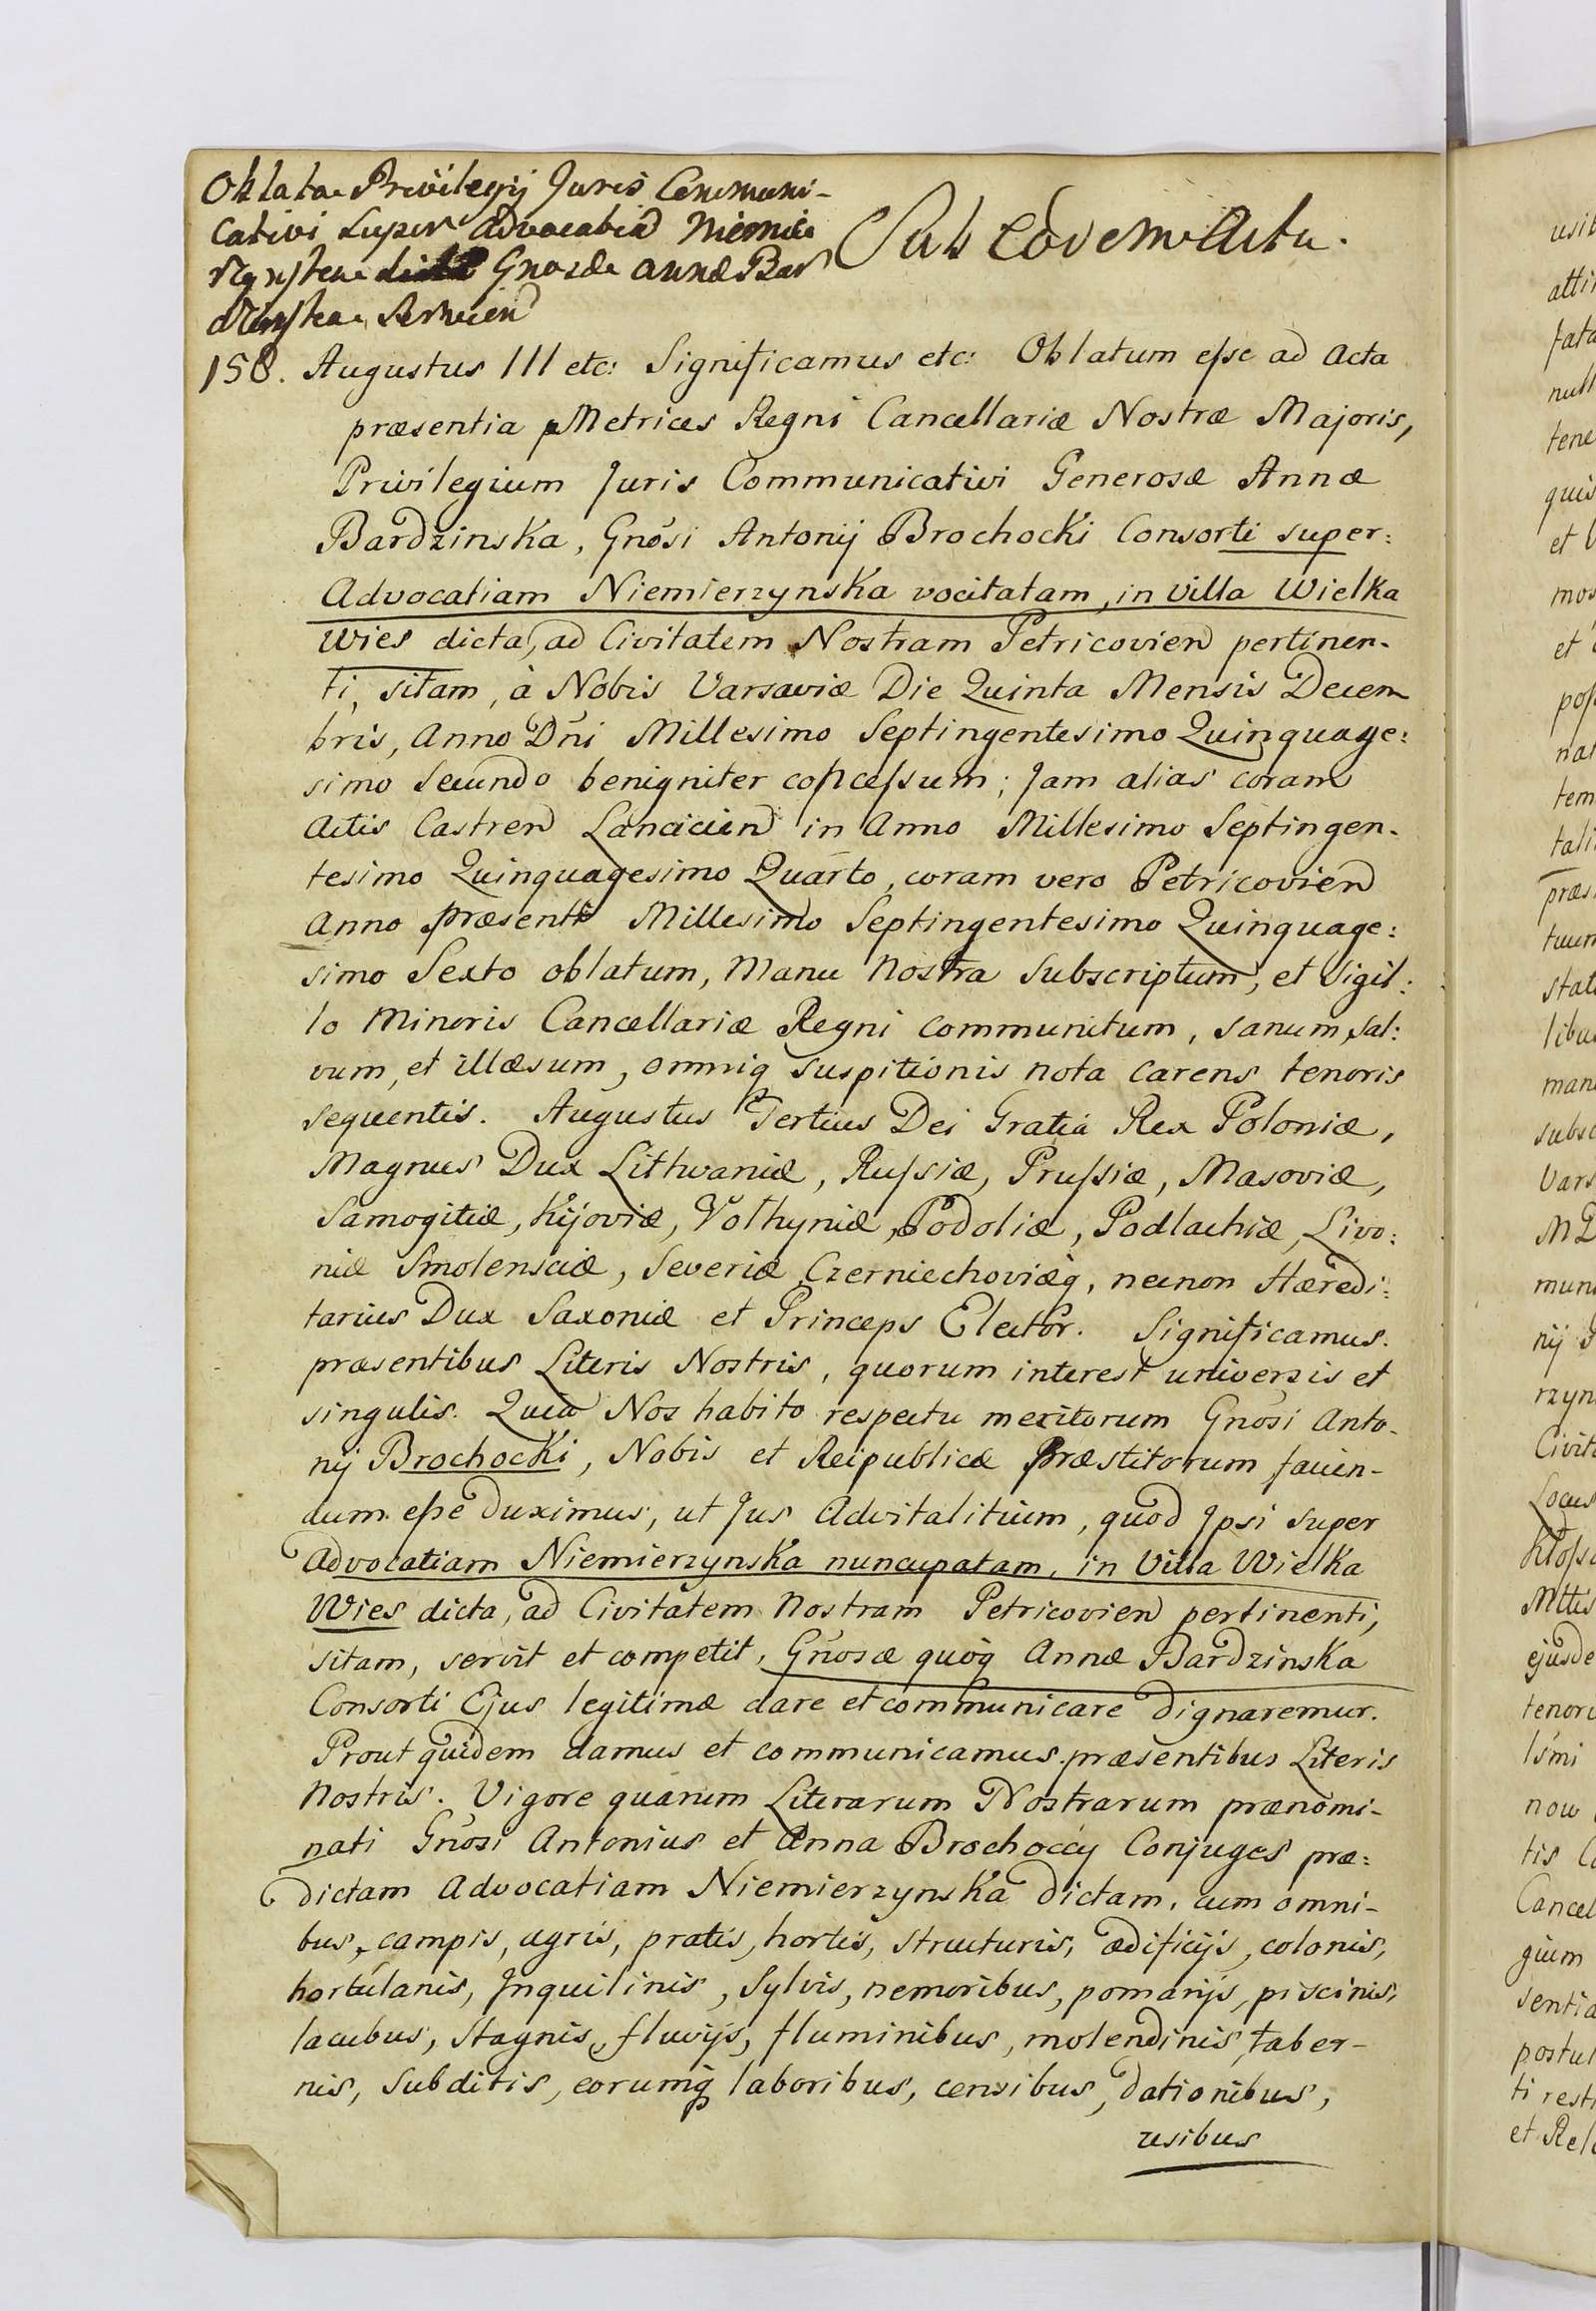 Oblata Privilegij Juris Communi-
cativi Super Advocatia Niemie
rzynska Gnosae Annae Bar
dzinska Servien
Sub Eodem Actu.
158. Augustus III etc: Significamus etc: Oblatum eſse ad Acta
præsentia Metrices Regni Cancellariæ Nostræ Majoris,
Privilegium Juris Communicativi Generosæ Annæ
Bardzinska, Gnosi Antonij Brochocki Consorti super:
Advocatiam Niemierzynska vocitatam, in Villa Wielka
Wies dicta, ad Civitatem Nostram Petricovien pertinen-
ti, sitam, à Nobis Varsaviæ Die Quinta Mensis Decem
bris, Anno Dni Millesimo Septingentesimo Quinquage:
simo Secundo benigniter conceſsum; Jam alias coram
Actis Castren Lancicien in Anno Millesimo Septingen-
tesimo Quinquagesimo Quarto, coram vero Petricovien
Anno præsenti Millesimo Septingentesimo Quinquage:
simo Sexto oblatum, Manu Nostra Subscriptum, et Sigil:
lo Minoris Cancellariæ Regni communitum, sanum, sal:
vum, et illæsum, omniq suspitionis nota carens tenoris
sequentis. Augustus Tertius Dei Gratia Rex Poloniæ,
Magnus Dux Lithvaniæ, Ruſsiæ, Pruſsiæ, Masoviæ,
Samogitiæ, Kijoviæ, Volhyniæ, Podoliæ, Podlachiæ, Livo:
niæ Smolensciæ, Severiæ, Czerniechoviæq, necnon Hæredi:
tarius Dux Saxoniæ et Princeps Elector. Significamus.
præsentibus Literis Nostris, quorum interest universis et
singulis. Quia Nos habito respectu meritorum Gnosi Anto-
nij Brochocki, Nobis et Reipublicæ Præstitorum faven-
dum eſse duximus, ut Jus Advitalitium, quod Ipsi super
Advocatiam Niemierzynska nuncupatam, in Villa Wielka
Wies dicta, ad Civitatem Nostram Petricovien pertinenti,
sitam, servit et competit, Gnosæ quoq Annæ Bardzinska
Consorti Ejus legitimæ dare et communicare dignaremur.
Prout quidem damus et communicamus præsentibus Literis
Nostris. Vigore quarum Literarum Nostrarum prænomi-
nati Gnosi Antonius et Anna Brochoccy Conjuges præ:
dictam Advocatiam Niemierzynska dictam, cum omni-
bus, campis, agris, pratis, hortis, structuris, ædificijs, colonis,
hortulanis, Inquilinis, Sylvis, nemoribus, pomarijs, piscinis,
lacubus, Stagnis, fluvijs, fluminibus, molendinis, taber-
nis, Subditis, eorumq laboribus, censibus, dationibus,
usibus